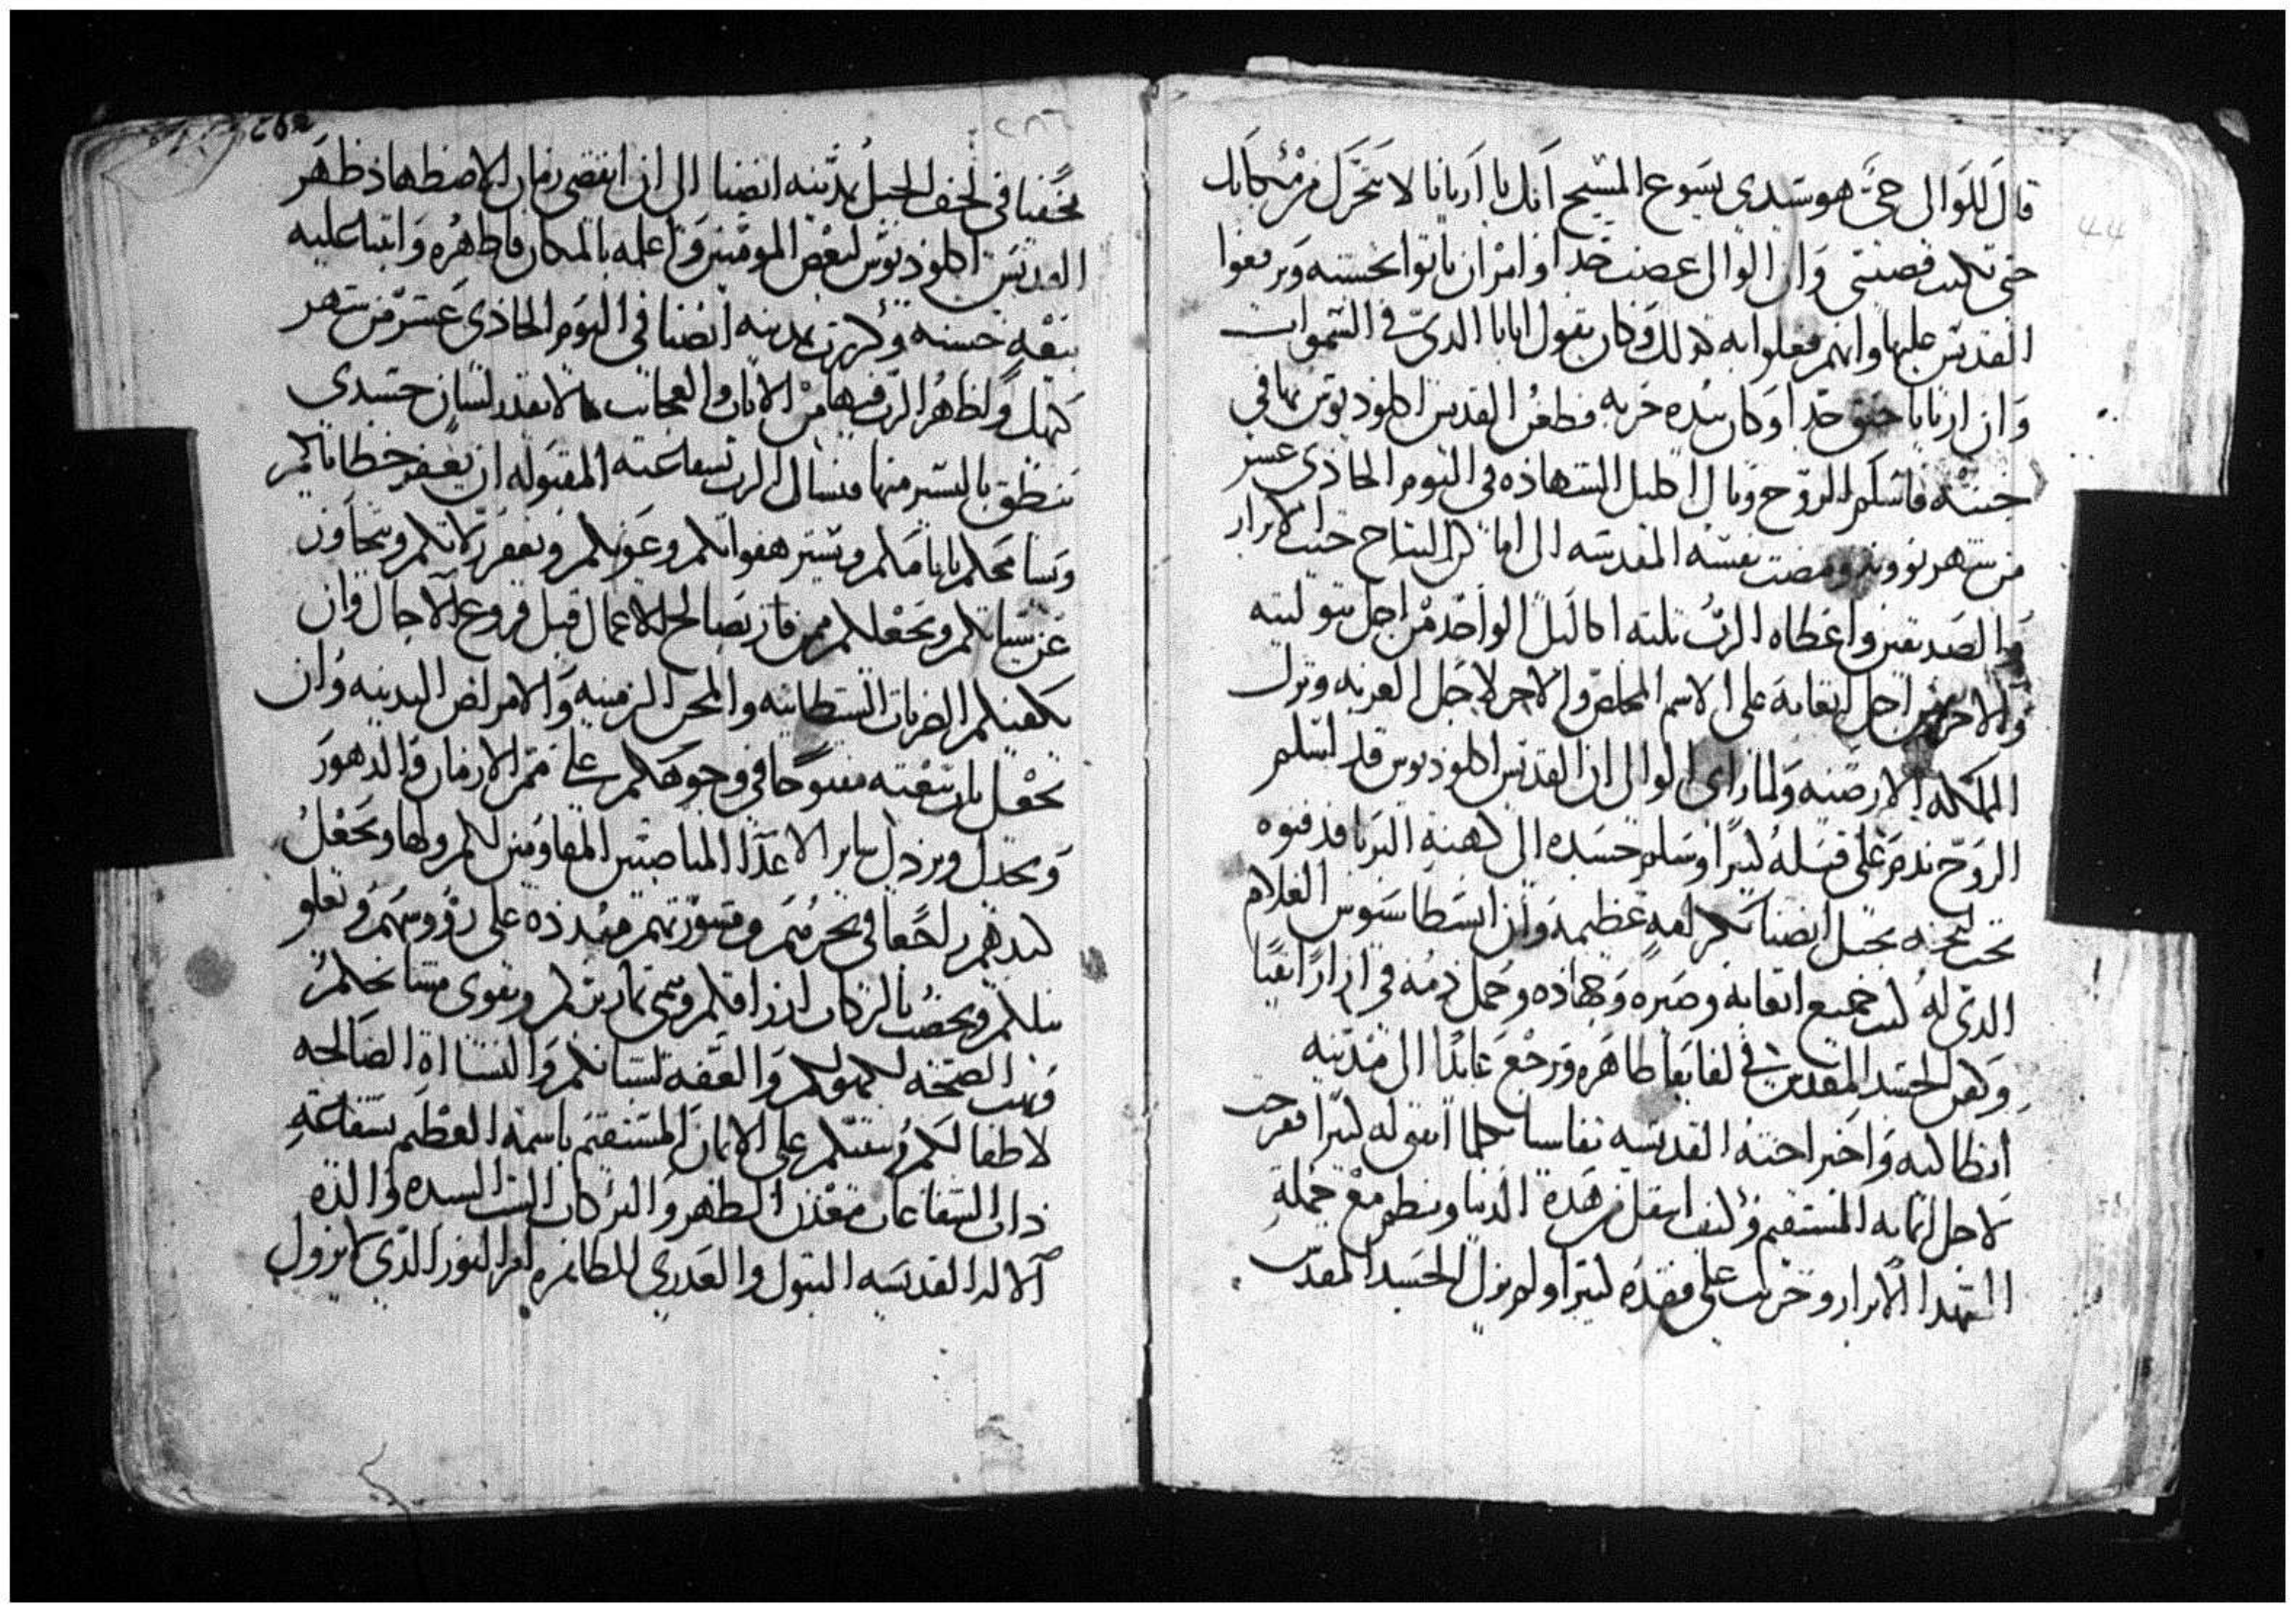 قال للوالى حى هو سيدى يسوع المسيح انك يا اريانا لا تتحرك من مكانك
حتى تكتب قصيتى وان الوالى غصب جدا وامر ان ياتوا بخشبه ويرفعوا
القديس عليها وانهم فعلوا به كذلك وكان يقول ايابا الدى فى السموات
وان اريانا حنق جدا وكان بيده حربه فطعن القديس اكلوديوس بها فى
جنبه فاسلم الروح ونال اكليل الشهاده فى اليوم الحادى عشر
من شهر بوونه ومضت نفسه المقدسه الى اماكن النياح حيث الابرار
والصديقين واعطاه الرب تلته اكاليل الواحد من اجل بتوليته
والاخر من اجل اتعابه على الاسم المخلص والاخر لاجل الغربه وترك
المملكه الارضيه ولما راى الوالى ان القديس اكلوديوس قد اسلم
الروح ندم على قتله كتيرا وسلم جسده الى كهنة البربا فدفنوه
تحت بجبل انصنا بكرامه عظيمه وان ابسطاسوس الغلام
الدى له كتب جميع اتعابه وصبره وجهاده وحمل دمه فى ازارا نقيا
وكفن الجسد المقدس فى لفايفا طاهره ورجع عايدا الى مدينه
انطاكيه واخبر اخته القديسه بكلما اتفق له كتيرا ففرحت
لاجل ايمانه المستقيم وكيف انتقل من هده الدنيا ونظم مع جملة
الشهدا الابرار وحزنت على فقده كتيرا ولم يزل الجسد المقدس
٢٨٦
مخفيا فى لحف الجبل بمدينه انصنا الى ان انقضى زمان الاضطهاد ظهر
القديس اكلوديوس لبعض المومنين واعلمه بالمكان فاظهره وابتنا عليه
بيعه حسنه وكرزت بمدينه انصنا فى اليوم الحادى عشر من شهر
كيهك واظهر الرب فيها من الايات والعجايب ما لا يقدر لسان جسدى
ينطق باليسير منها فنسال الرب بشفاعته المقبوله ان يغفر خطاياكم
ويسامحكم باتامكم ويستر هفواتكم وعيوبكم ويغفر زلاتكم ويتجاوز
عن سياتكم ويجعلكم ممن فاز بصالح الاعمال قبل فروغ الاجال وان
يكفيكم الضربات الشيطانيه والمحن الزمنيه والامراض البدنيه وان
يجعل باب بيعته مفتوحا فى وجوهكم على ممر الازمان والدهور
ويخدل ويردل ساير الاعدا المناصبين المقاومين لكم ولها ويجعل
كيدهم راجعا فى نحرهم ومشورتهم مبدده على رووسهم ويعلو
ويخصب بالبركات ارزاقكم ويقوى مشايخكم
ويهب الصحه لكهولكم والعفه لشبانكم والنشااه الصالحه
لاطفالكم ويتبتكم على الايمان المستقيم باسمه العظيم بشفاعة
دات الشفاعات معدن الطهر والبركات الست السيده والدة
الاله القديسه البتول والعدرى الطاهره ام النور الدى لا يزول